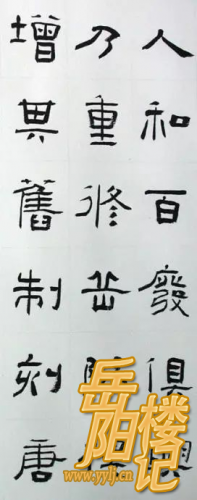 人和百廢俱
乃重修岳
增其舊制刻唐
岳阳楼记
www.yylj.cn